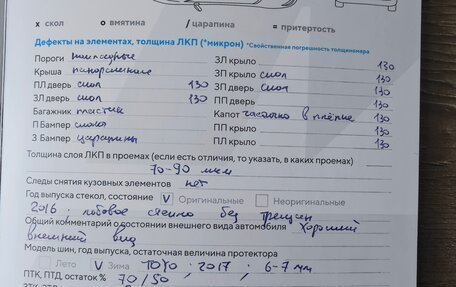 х скол о вмятина / царапина = притертость
Дефекты на элементах, толщина ЛКП (*микрон) *Свойственная погрешность толщиномера
Пороги пипсурные ЗЛ крыло 130
Крыша панорамная ЗП крыло скол 130
ПЛ дверь скол 130 ЗП дверь скол 130
ЗЛ дверь скол 130 ПП дверь 130
Багажник пластик Капот частично в плёнке 130
П Бампер ПП крыло 130
З Бампер царапины ПЛ крыло 130
Толщина слоя ЛКП в проемах (если есть отличия, то указать, в каких проемах)
70-90 мкм
Следы снятия кузовных элементов нет
Год выпуска стекол, состояние V Оригинальные Неоригинальные
2016. лобовое стекло без трещин
Общий комментарий о состоянии внешнего вида автомобиля Хороший
внешний вид
Модель шин, год выпуска, остаточная величина протектора
Лето V Зима TOYO ; 2017 ; 6-7 мм
ПТК, ПТД, остаток % 70/50